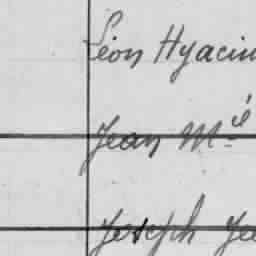 Léon Hyacin
Jean M.ie
Joseph Je